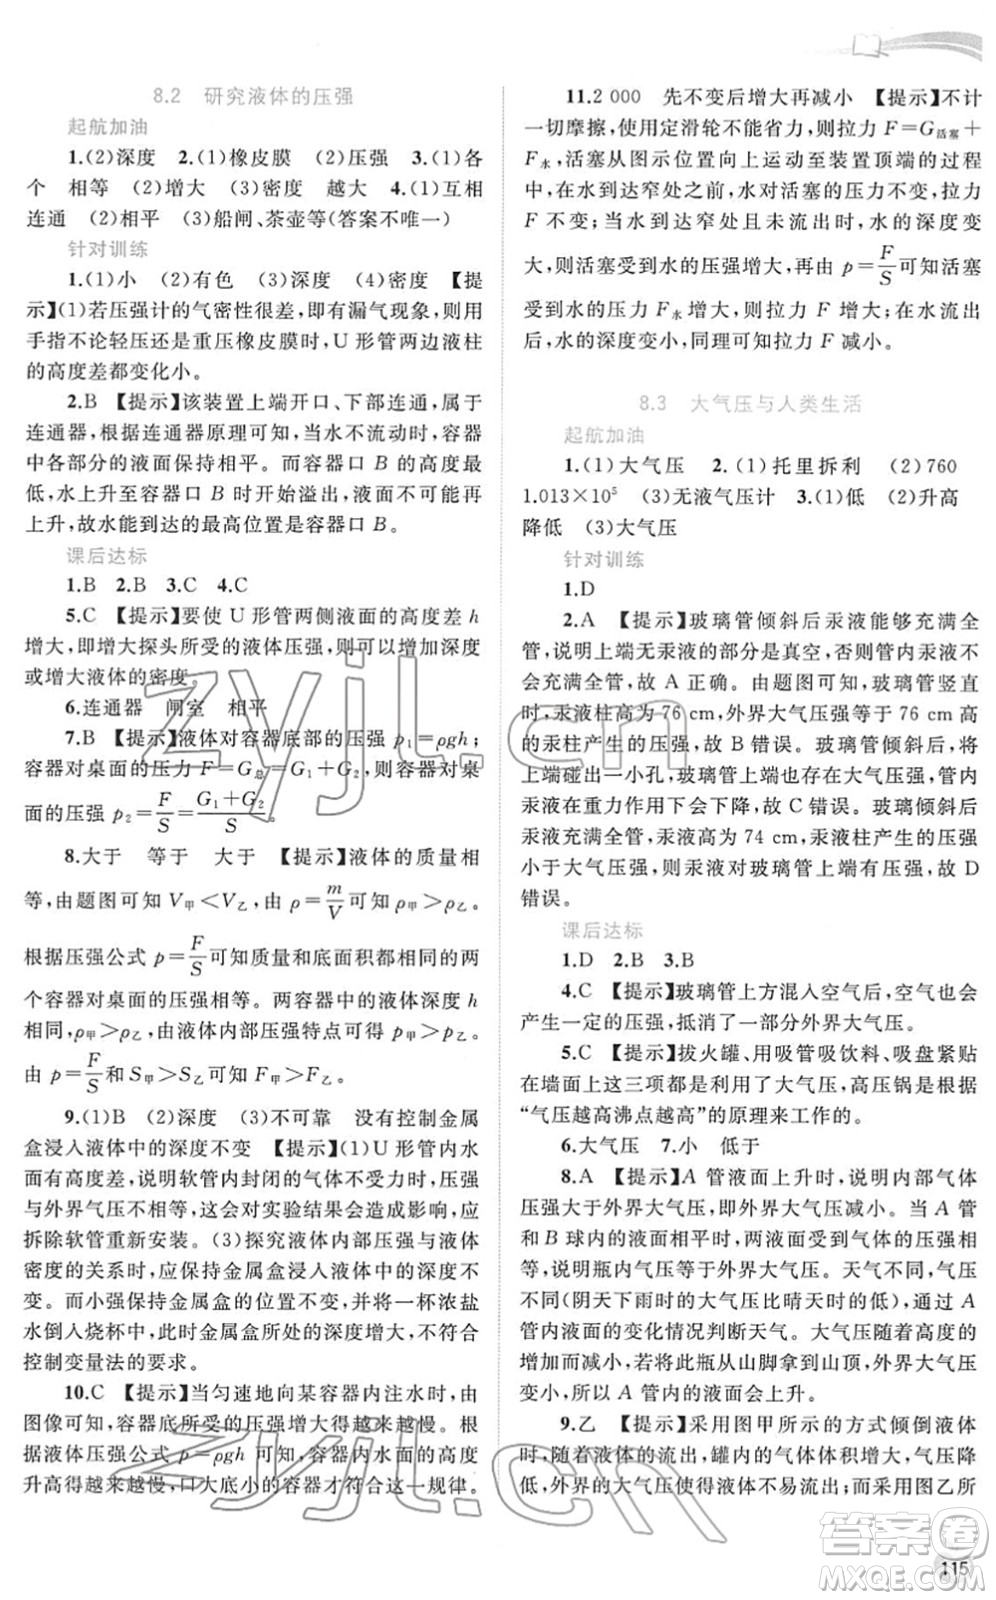 8.2 研究液体的压强
起航加油
1.(2)深度 2.(1)橡皮膜 (2)压强 3.(1)各
个 相等 (2)增大 (3)密度 越大 4.(1)互相
连通 (2)相平 (3)船闸、茶壶等(答案不唯一)
针对训练
1.(1)小 (2)有色 (3)深度 (4)密度 【提
示】(1)若压强计的气密性很差,即有漏气现象,用
手指不论轻压还是重压橡皮膜时,U 形管两边液柱
的高度差都变化小。
2.B 【提示】该装置上端开口、下部连通,属于
连通器,根据连通器原理可知,当水不流动时,容器
中各部分的液面保持相平。而容器口 B 的高度最
低,水上升至容器口 B 时开始溢出,液面不可能再
上升,故水能到达的最高位置是容器口 B。
课后达标
1.B 2.B 3.C 4.C
5.C 【提示】要使 U 形管两侧液面的高度差 h
增大,即增大探头所受的液体压强,则可增大深度
或增大液体的密度。
6.连通器 闸室 相平
7.B 【提示】液体对容器底部的压强 p₁=ρgh;
容器对桌面的压力 F=G总=G₁+G₂,则容器对桌
面的压强 p₂=F/S=(G₁+G₂)/S。
8.大于 等于 大于 【提示】液体的质量相
等,由题图可知 V甲<V乙,由 ρ=m/V可知 ρ甲>ρ乙。
根据压强公式 p=F/S可知质量和底面积都相同的两
个容器对桌面的压强相等。两容器中的液体深度 h
相同,ρ甲>ρ乙,由液体内部压强特点可得 p甲>p乙。
由 p=F/S和 S甲>S乙可知 F甲>F乙。
9.(1)B (2)深度 (3)不可靠 没有控制金属
盒浸入液体中的深度不变 【提示】(1)U 形管内水
面有高度差,说明软管内封闭的气体不受力时,压强
与外界气压不相等,这会对实验结果造成影响,应
拆除软管重新安装。(3)探究液体内部压强与液体
密度的关系时,应保持金属盒浸入液体中的深度不
变。而小强保持金属盒的位置不变,并将一杯浓盐
水倒入烧杯中,此时金属盒所处的深度增大,不符合
控制变量法的要求。
10.C 【提示】当匀速地向某容器内注水时,由
图像可知,容器底部所受的压强增大得越来越慢。根
据液体压强公式 p=ρgh 可知,容器内水面的高度
升高得越来越慢,口大底小的容器才符合这一规律。
11.2 000 先不变后增大再减小 【提示】不计
一切摩擦,使用定滑轮不能省力,则拉力 F=G活塞+
F水,活塞从图示位置向上运动至装置顶端的过程
中,在水到达窄处之前,水对活塞的压力不变,拉力
F 不变;当水到达窄处且未流出时,水的深度变
大,则活塞受到水的压强增大,再由 p=F/S可知活塞
受到水的压力 F水 增大,拉力 F 增大;在水流出
后,水的深度变小,同理可知拉力 F 减小。
8.3 大气压与人类生活
起航加油
1.(1)大气压 2.(1)托里拆利 (2)760
1.013×10⁵ (3)无液气压计 3.(1)低 (2)升高
降低 (3)大气压
针对训练
1.D
2.A 【提示】玻璃管倾斜后汞液能够充满全
管,说明上端无汞液的部分是真空,否则管内汞液不
能充满全管,故 A 正确。由题图可知,玻璃管竖直
时,汞液柱高为 76 cm,外界大气压强等于 76 cm 高
的汞柱产生的压强,故 B 错误。玻璃管倾斜后,若将
上端碰出一小孔,玻璃管上端也存在大气压强,管内
汞液在重力作用下会下降,故 C 错误。玻璃管倾斜后
汞液充满全管,汞液高为 74 cm,汞液柱产生的压强
小于大气压强,则汞液对玻璃管上端有压强,故 D
错误。
课后达标
1.D 2.B 3.B
4.C 【提示】玻璃管上方混入空气后,空气也会
产生一定的压强,抵消了一部分外界大气压。
5.C 【提示】拔火罐、用吸管吸饮料、吸盘紧贴
在墙面上这三项都是利用了大气压,高压锅是根据
“气压越高沸点越高”的原理来工作的。
6.大气压 7.小 低于
8.A 【提示】A 管液面上升时,说明内部气体
压强大于外界大气压,即外界大气压减小。当 A 管
和 B 球内的液面相平时,两液面受到气体的压强相
等,说明瓶内气压等于外界大气压。天气不同,气压
不同(阴天下雨时的大气压比晴天时的低),通过 A
管内液面的变化情况判断天气。大气压随着高度的
增加而减小,此瓶从山脚拿到山顶,外界大气压
变小,所以 A 管内的液面会上升。
9.乙 【提示】采用图甲所示的方式倾倒液体
时,随着液体的流出,罐内的气体体积增大,气压降
低,外界的大气压使得液体不易流出;而采用图乙所
115
zyjl.cn
zyjl.cn
答案圈
MXQE.COM